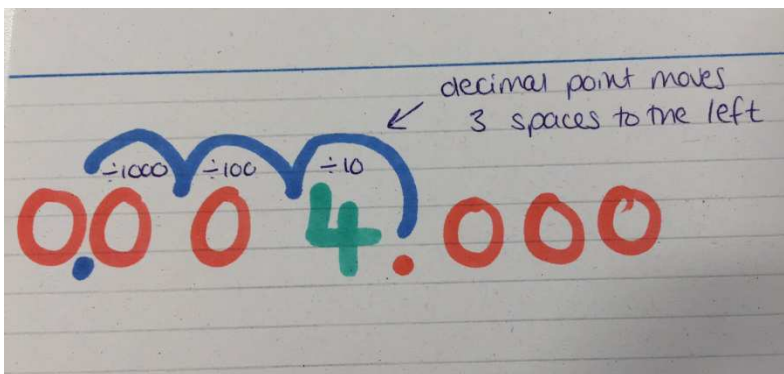 decimal point moves
3 spaces to the left
÷1000 ÷100 ÷10
0.004.000